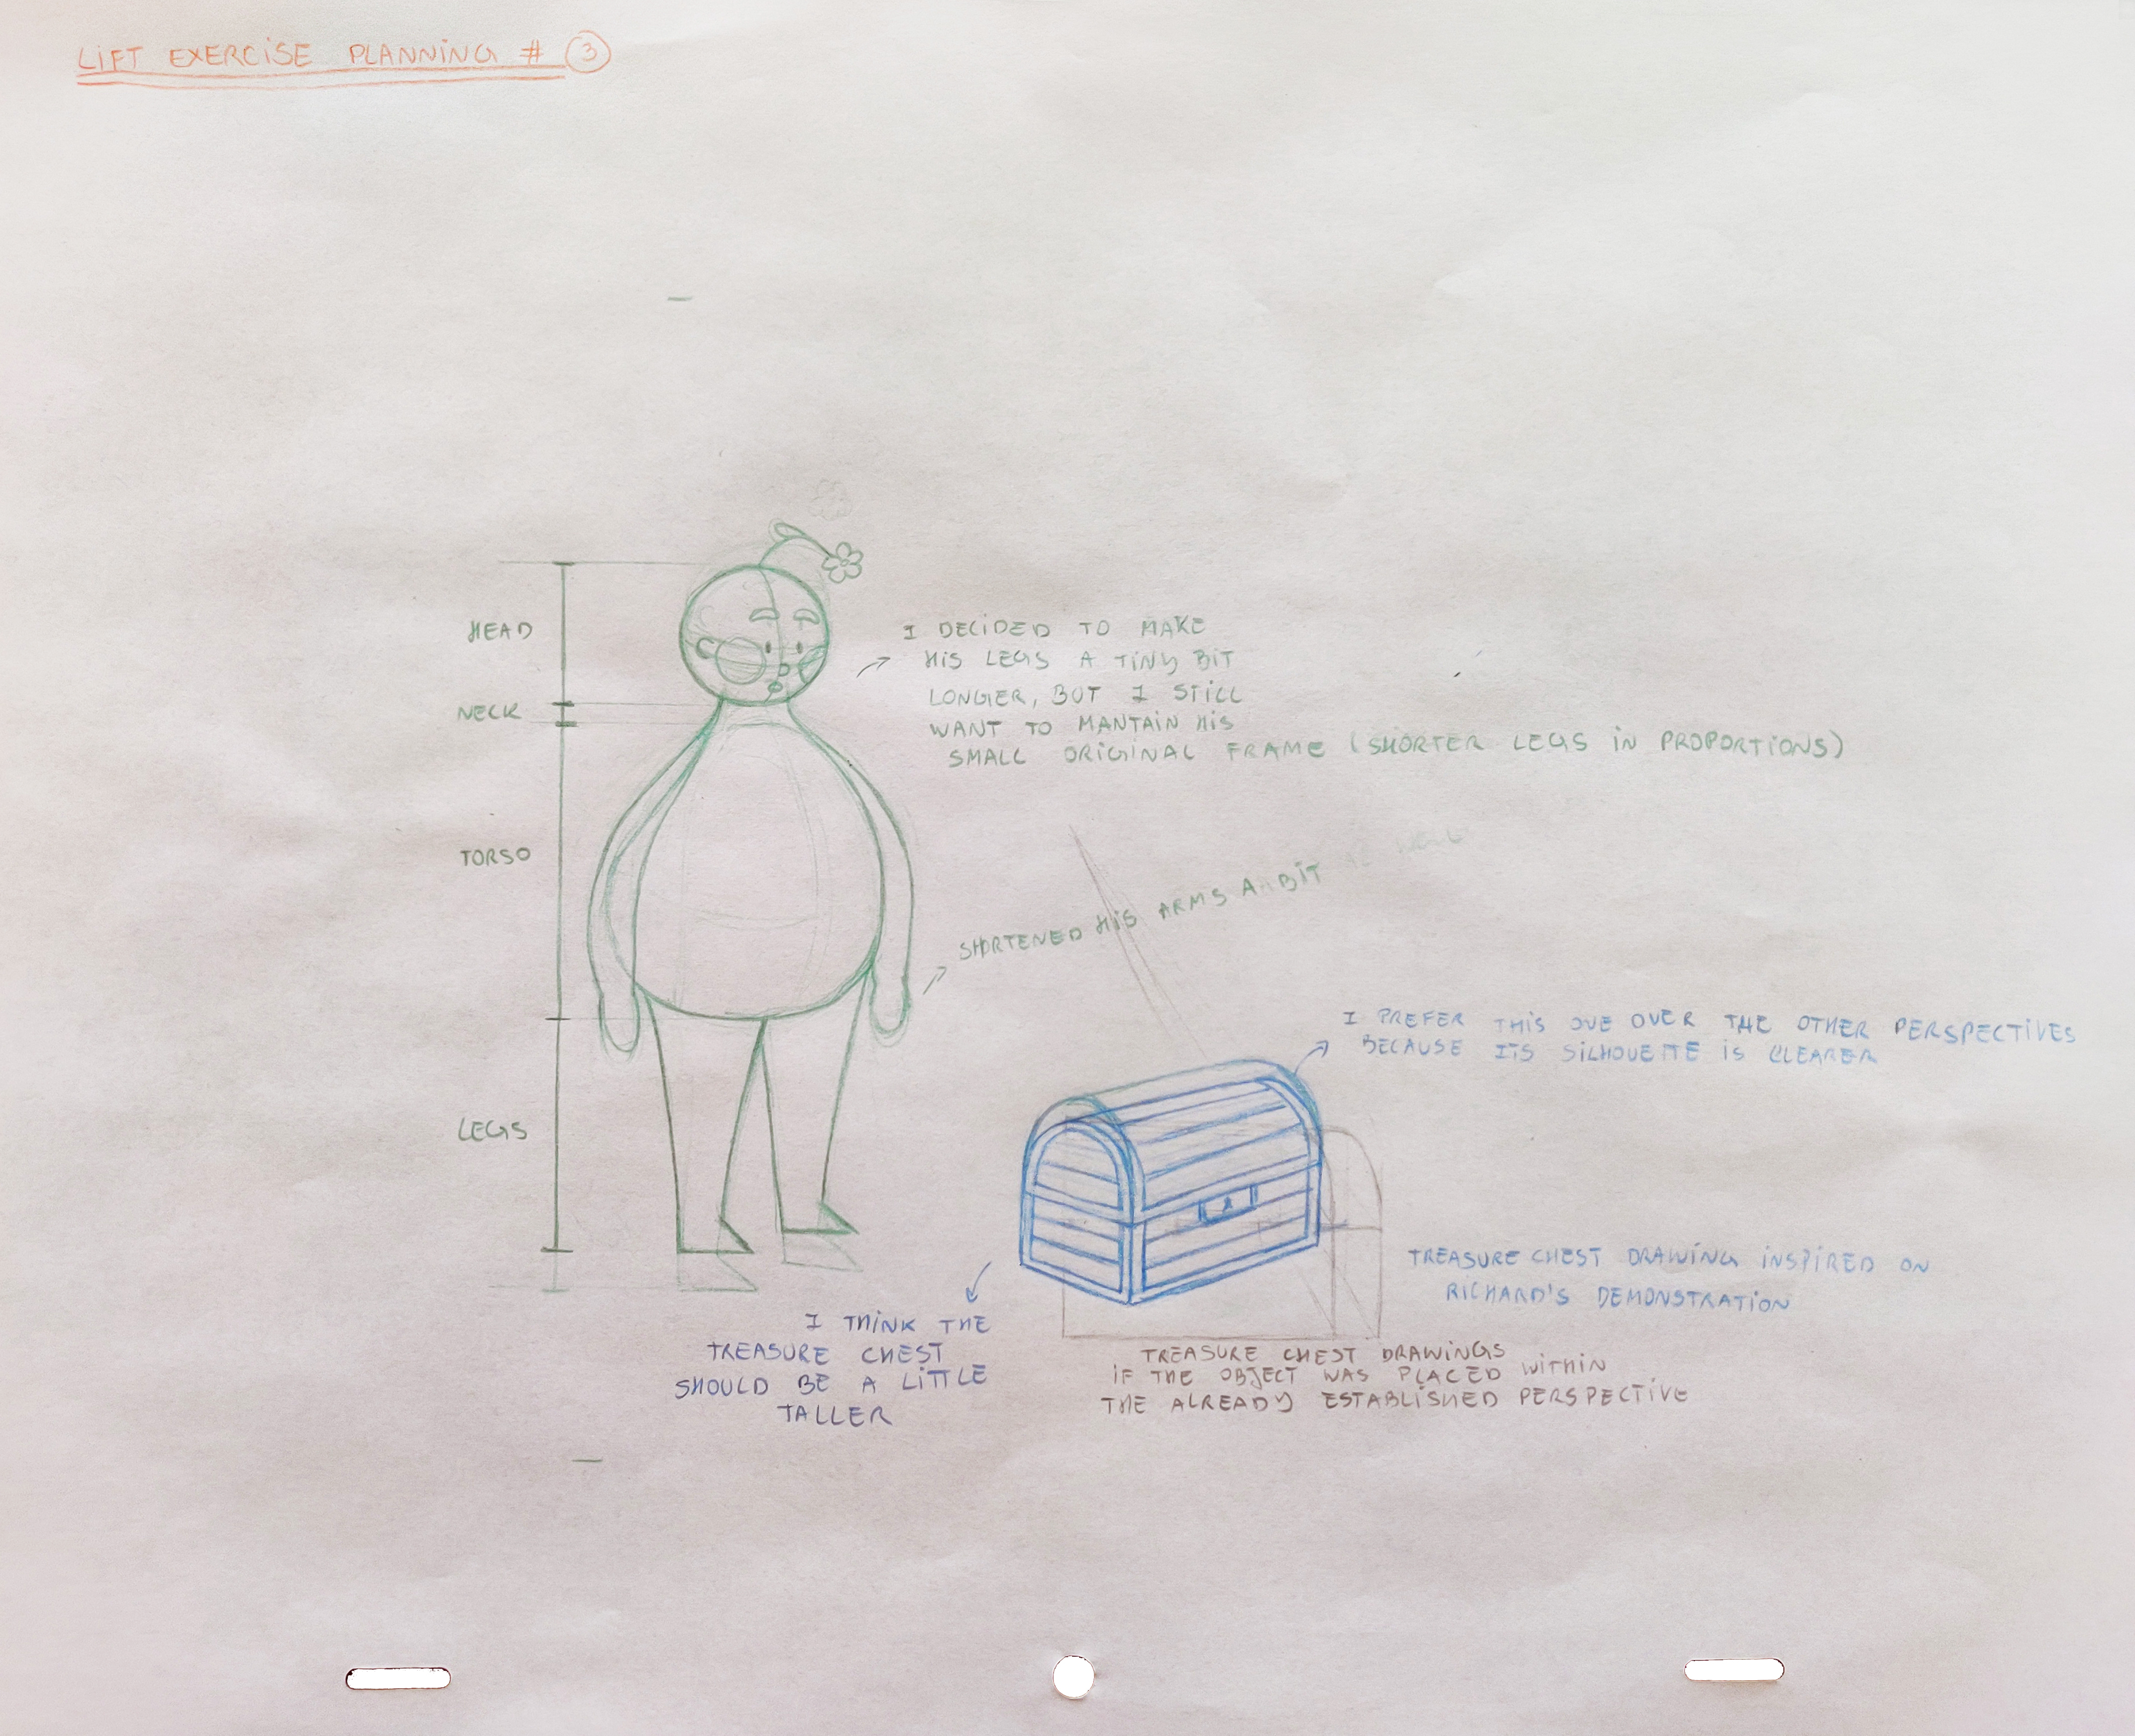 LIFT EXERCISE PLANNING # 3
HEAD
NECK
TORSO
LEGS
I DECIDED TO MAKE
HIS LEGS A TINY BIT
LONGER, BUT I STILL
WANT TO MANTAIN HIS
SMALL ORIGINAL FRAME (SHORTER LEGS IN PROPORTIONS)
SHORTENED HIS ARMS A BIT AS WELL
I PREFER THIS ONE OVER THE OTHER PERSPECTIVES
BECAUSE ITS SILHOUETTE IS CLEARER
TREASURE CHEST DRAWING INSPIRED ON
RICHARD'S DEMONSTRATION
I THINK THE
TREASURE CHEST
SHOULD BE A LITTLE
TALLER
TREASURE CHEST DRAWINGS
IF THE OBJECT WAS PLACED WITHIN
THE ALREADY ESTABLISHED PERSPECTIVE